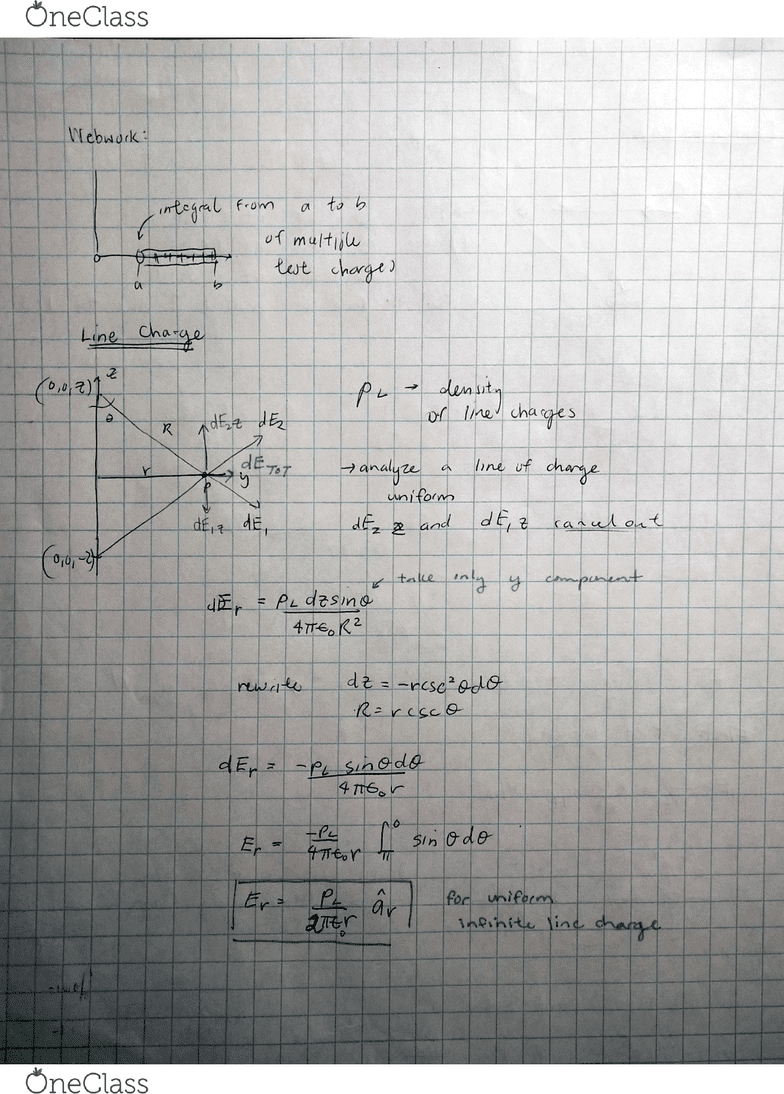 OneClass
Webwork:
integral from a to b
of multiple
test charges
a b
Line Charge
(0,0,z) z
θ
R
dE₂z dE₂
r
dE TOT
y
P
dE₁z dE₁
(0,0,-z)
ρL → density
of line charges
→ analyze a line of charge
uniform
dE₂ z and dE₁z cancel out
take only y component
dEr = ρL dz sinθ / 4πϵ₀R²
rewrite dz = -rcsc²θdθ
R = rcscθ
dEr = -ρL sinθdθ / 4πϵ₀r
Er = -ρL / 4πϵ₀r ∫π⁰ sinθdθ
Er = ρL / 2πϵ₀r âr
for uniform
infinite line charge
OneClass